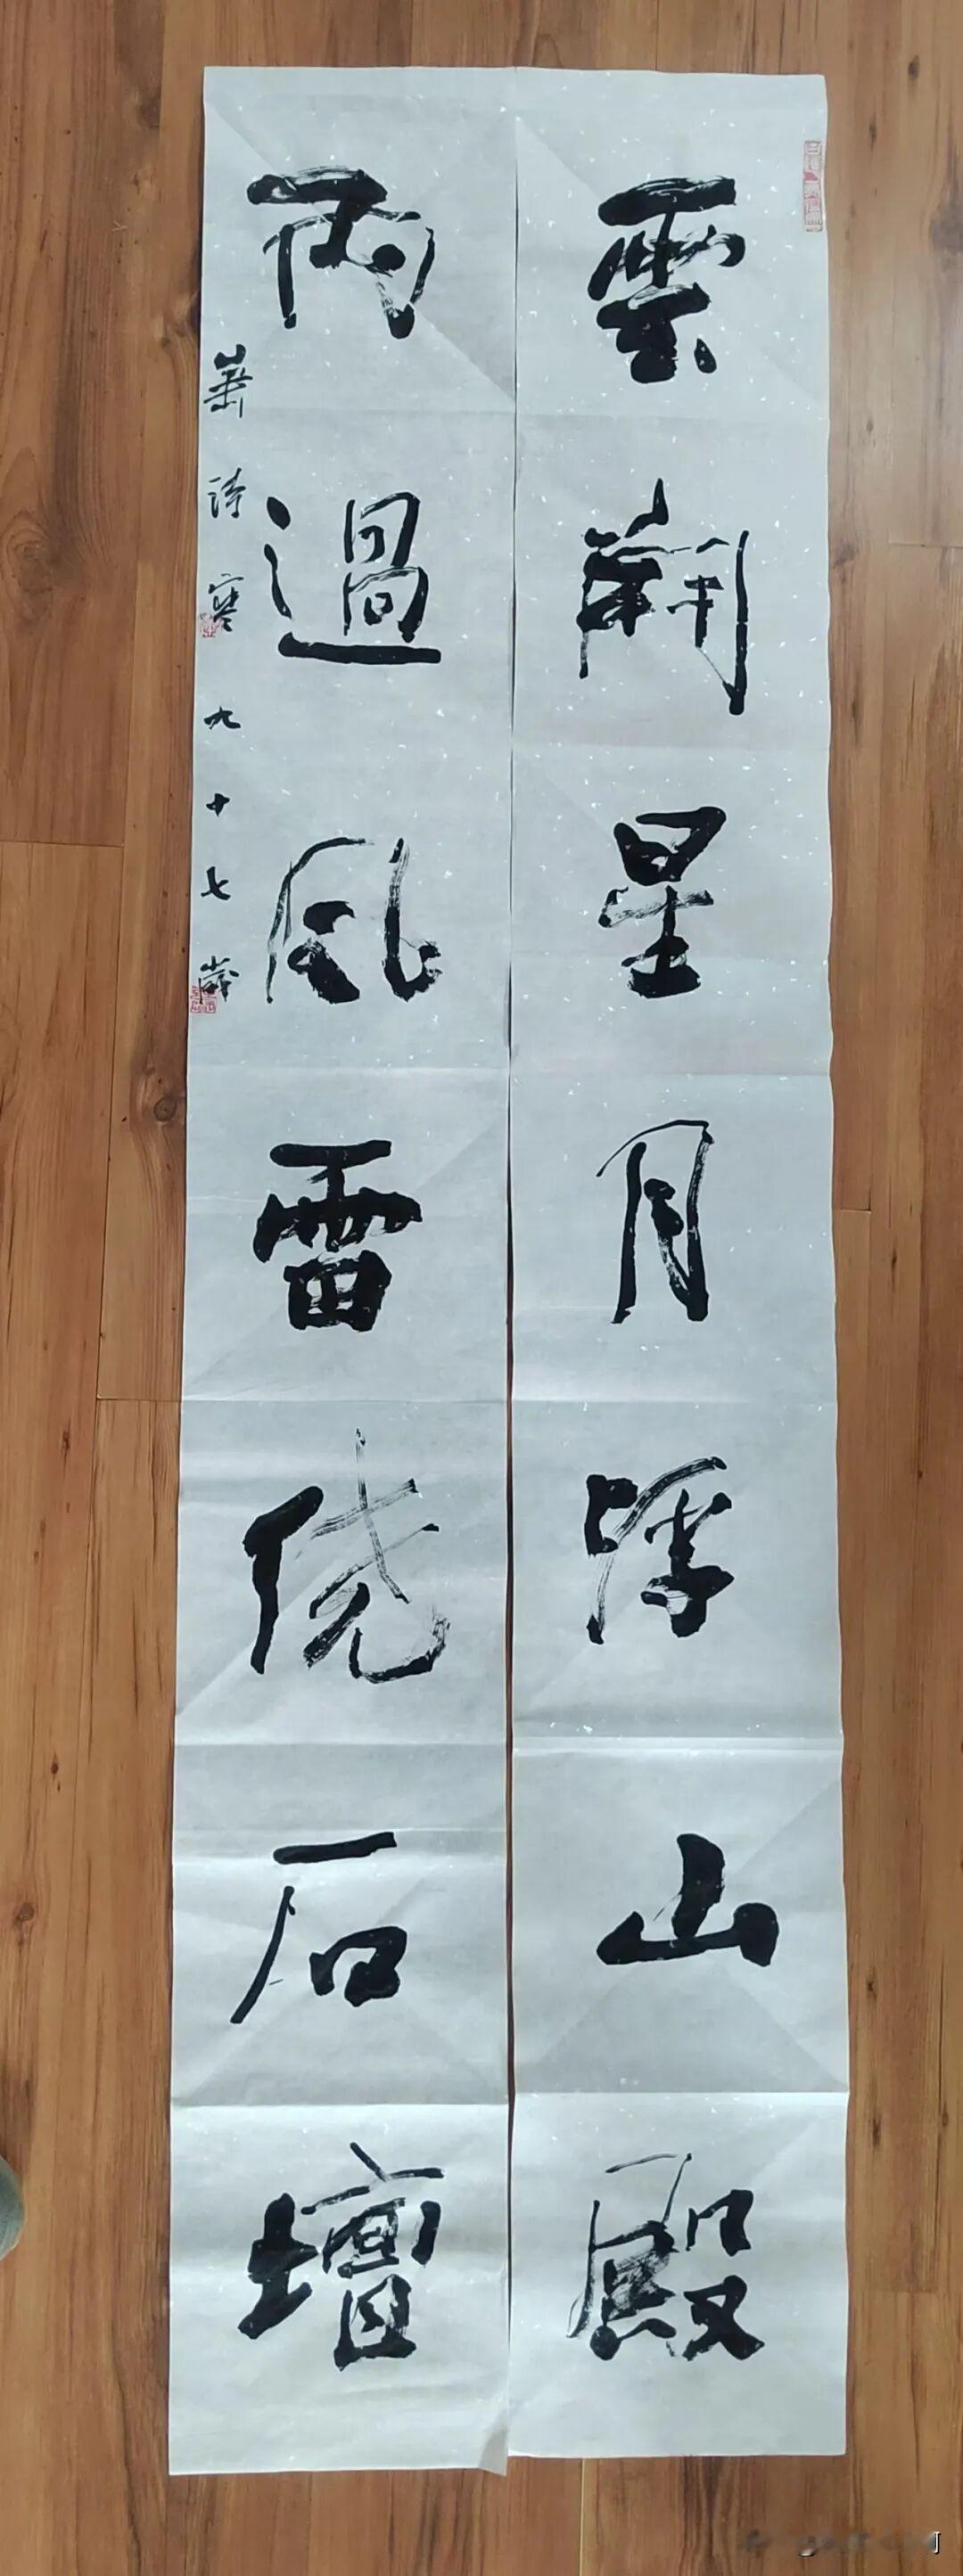 雲開星月浮山殿
雨過風雷绕石壇
萧诗寒九十七歲